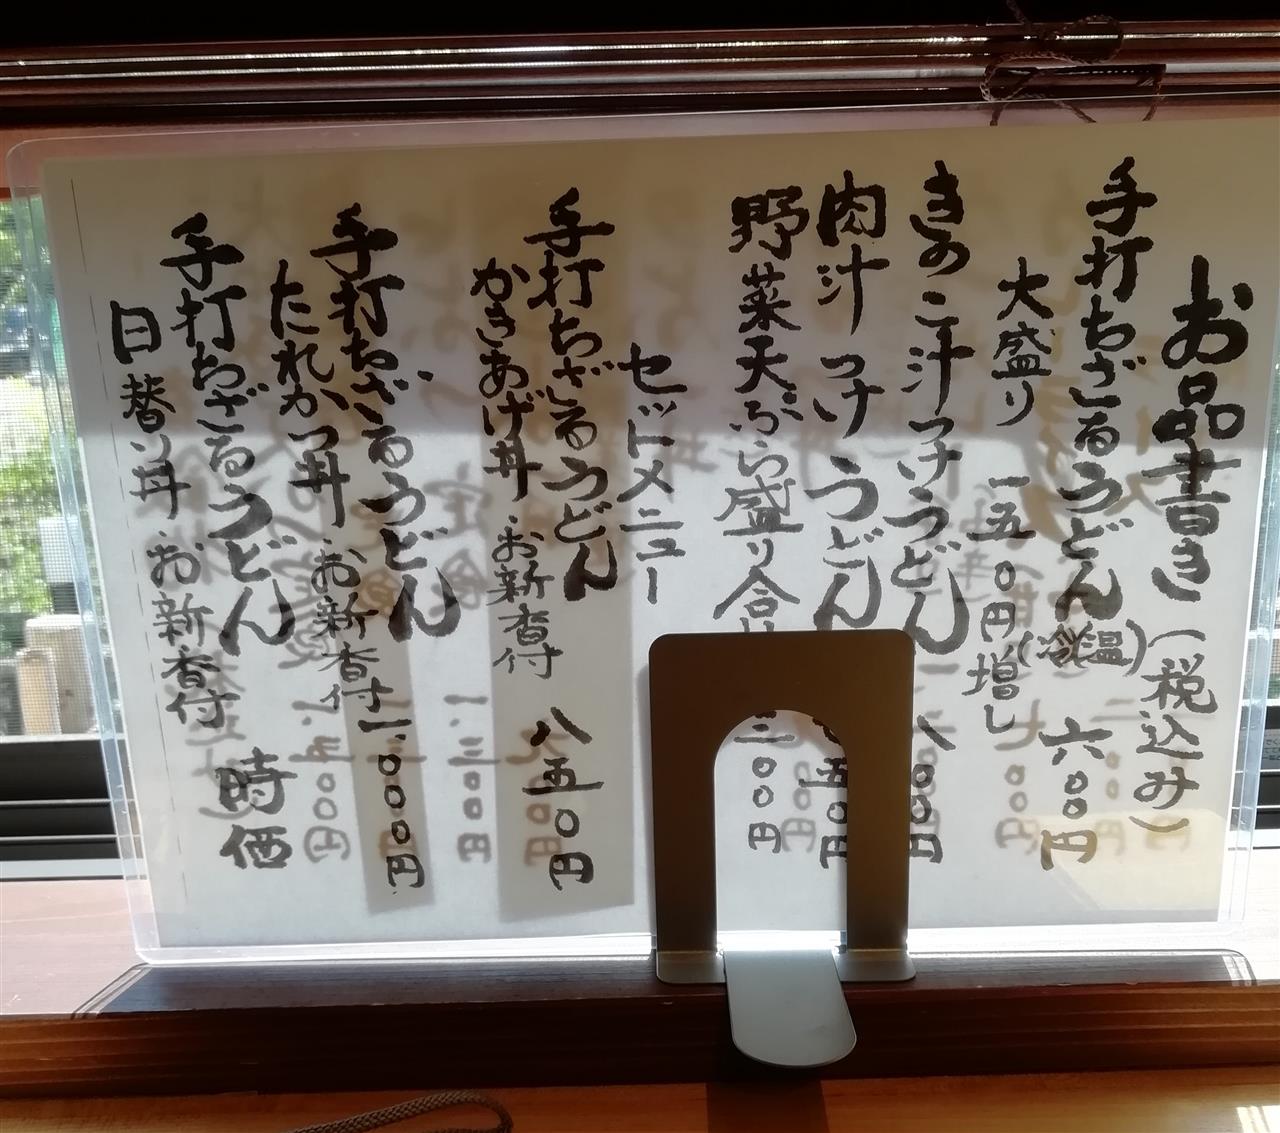 お品書き(税込み)
手打ちざるうどん(温冷) 六〇〇円
大盛り 一五〇円増し
きのこ汁つけうどん 八〇〇円
肉汁つけうどん 五〇円
野菜天ぷら盛り合 三〇〇円
セットメニュー
手打ちざるうどん
かきあげ丼・お新香付 八五〇円
手打ちざるうどん
たれカツ丼・お新香付 一、〇〇〇円
手打ちざるうどん
日替り丼・お新香付 時価